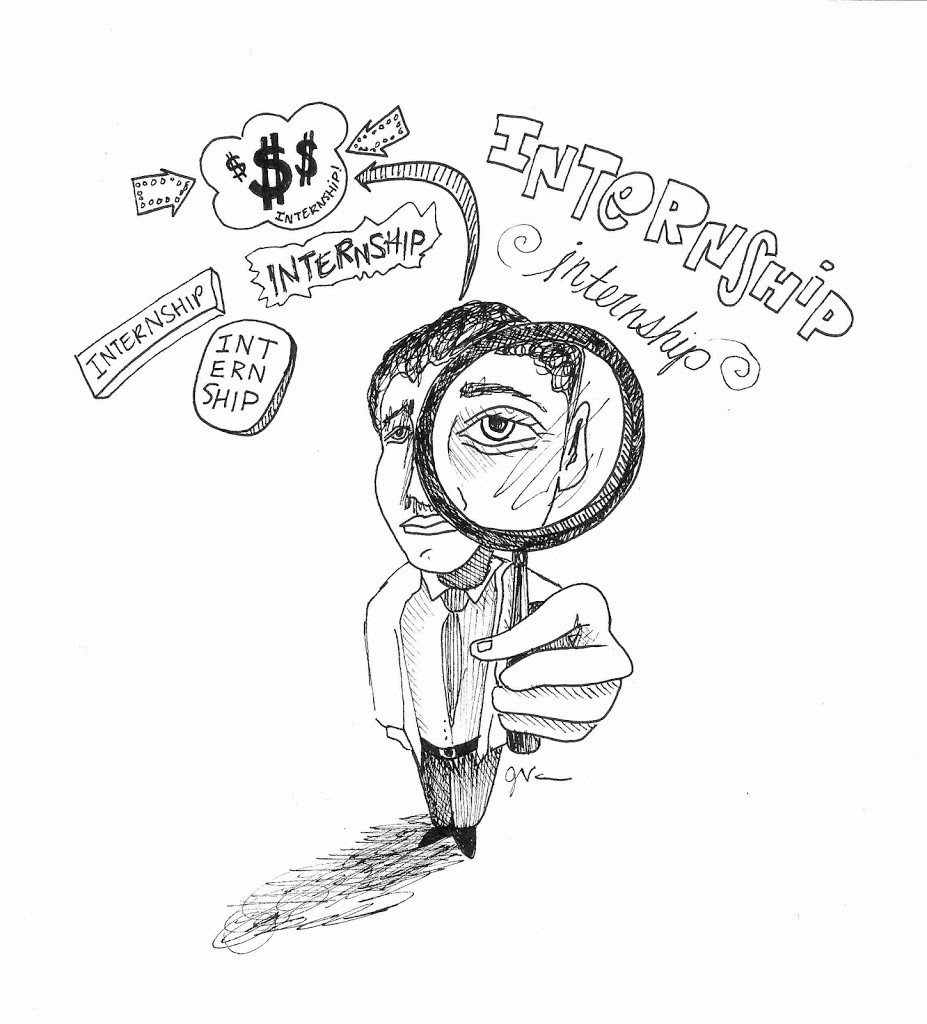 $ $ $
INTERNSHIP!
INTERNSHIP
INTERNSHIP
INT
ERN
SHIP
INTERNSHIP
internship